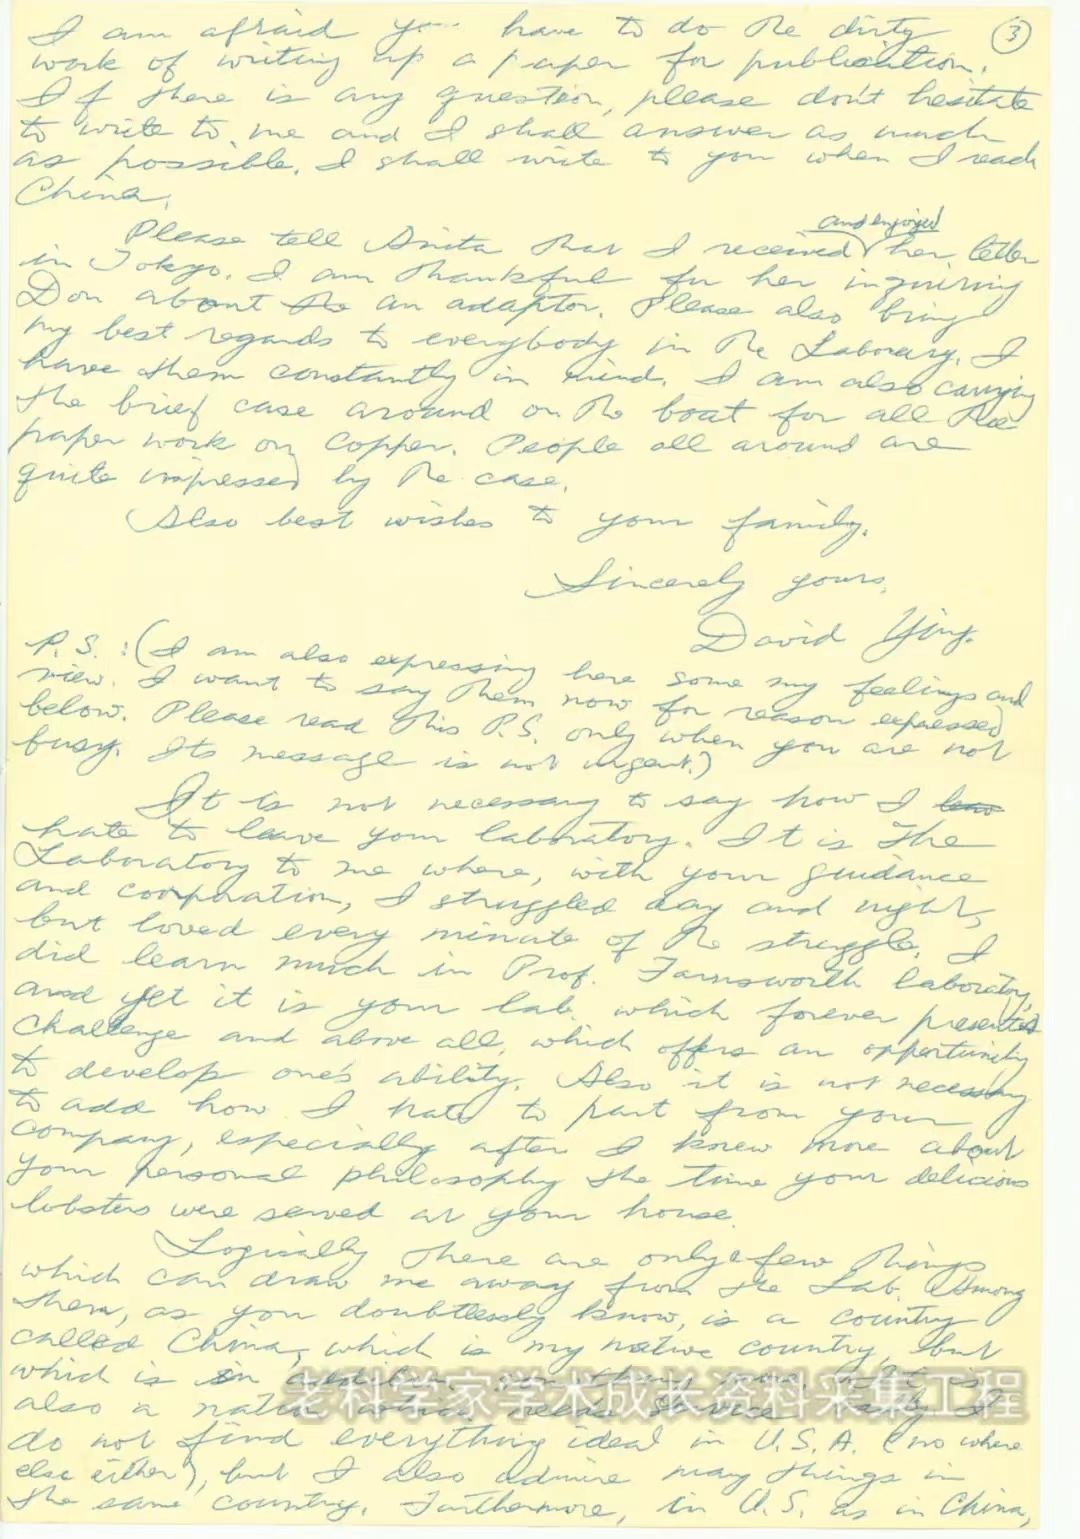 I am afraid you have to do the dirty
③
work of writing up a paper for publication.
If there is any question, please don't hesitate
to write to me and I shall answer as much
as possible. I shall write to you when I reach
China.
and enjoyed
Please tell Anita that I received her letter
in Tokyo. I am thankful for her inquiring
Don about the an adaptor. Please also bring
my best regards to everybody in the Laborary. I
have them constantly in mind. I am also carrying
the brief case around on the boat for all the
paper work on copper. People all around are
quite impressed by the case.
Also best wishes to your family.
Sincerely yours,
David Ying.
P.S.: (I am also expressing here some my feelings and
view. I want to say them now for reason expressed
below. Please read this P.S. only when you are not
busy. Its message is not urgent.)
It is not necessary to say how I
hate to leave your laboratory. It is the
Laboratory to me where, with your guidance
and cooperation, I struggled day and night,
but loved every minute of the struggle. I
did learn much in Prof. Farnsworth laboratory,
and yet it is your lab. which forever presented
challenge and above all, which offers an opportunity
to develop one's ability. Also it is not necessary
to add how I hate to part from your
company, especially after I knew more about
your personal philosophy the time your delicious
lobsters were served at your house.
Logically there are only a few things
which can draw me away from the Lab. Among
them, as you doubtlessly know, is a country
called China, which is my native country, but
which is in
老科学家学术成长资料采集工程
also a nation needs service I
do not find everything ideal in U.S.A. (no where
else either), but I also admire many things in
the same country. Furthermore, in U.S. as in China,